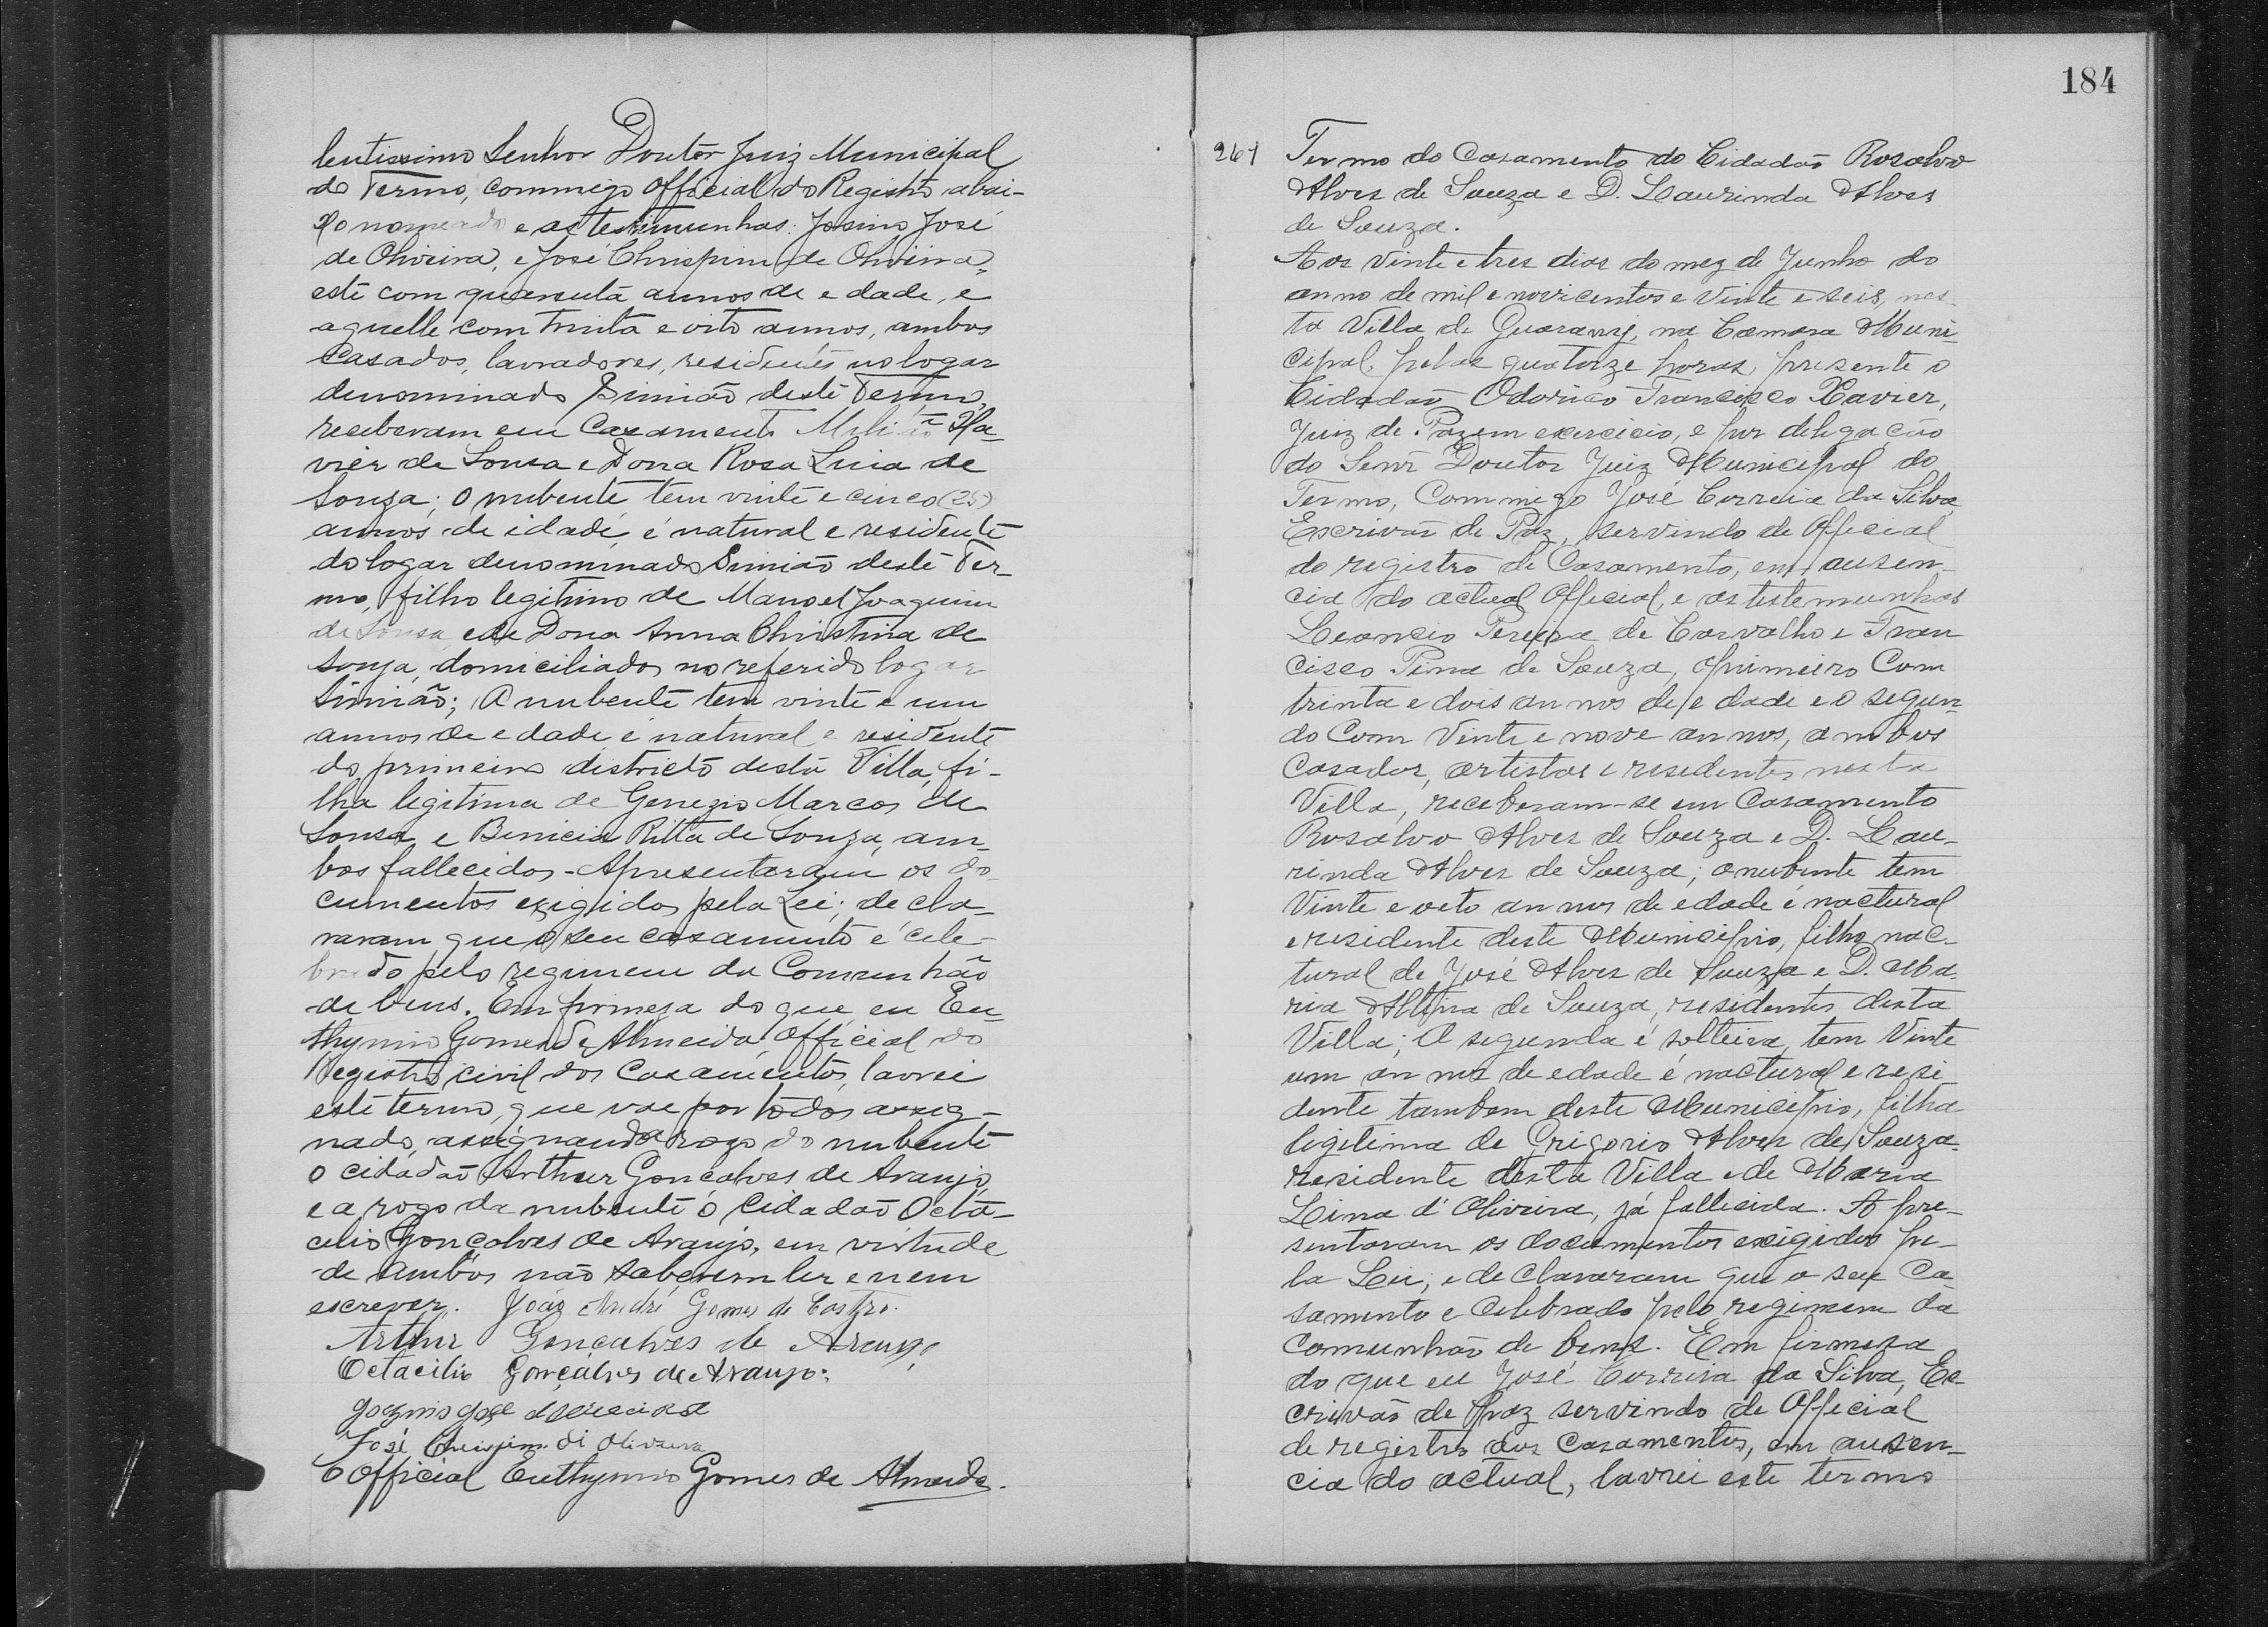 lentissimo Senhor Doutor Juiz Municipal
do Termo, commigo Official do Registro abai-
xo nomeado e as testimunhas: Josino José
de Oliveira, e José Chrispim de Oliveira,
este com quarenta annos de edade, e
aquelle com trinta e oito annos, ambos
casados, lavradores, residentes no logar
denominado Simião deste Termo,
receberam em Casamento Xa-
vier de Sousa e Dona Rosa Luia de
Souza; O nubente tem vinte e cinco (25)
annos de idade, é natural e residente
do logar denominado Simião deste Ter-
mo, filho legitimo de Manoel Joaquim
de Sousa e de Dona Anna Christina de
Souza, domiciliados no referido logar
Simião; A nubente tem vinte e um
annos de edade é natural e residente
do primeiro districto desta Villa, fi-
lha legitima de Genezio Marcos de
Sousa e Benicia Ritta de Souza, am-
bos fallecidos - Apresentaram os do-
cumentos exigidos pela Lei; decla-
raram que o seu casamento é cele-
brado pelo regimem da Comunhão
de bens. Em firmeza do que, eu Eu-
thymio Gomes de Almeida, Official do
Registro civil dos Casamentos, lavrei
este termo, que vae por todos assig-
nado, assignando a rogo do nubente
o cidadão Arthur Gonçalves de Araujo,
e a rogo da nubente o cidadão Octa-
cilio Gonçalves de Araujo, em virtude
de ambos não saberem ler e nem
escrever. João André Gomes de Castro.
Arthur Gonçalves de Araujo
Octacilio Gonçalves de Araujo.
José
José Chrispim di Oliveira
O Official Euthymio Gomes de Almeida.
184
267 Termo do Casamento do Cidadão Rosalvo
Alves de Souza e D. Laurinda Alves
de Souza.
Aos vinte e tres dias do mez de Junho do
anno de mil e novicentos e vinte e seis, nes-
ta Villa de Guarany, na Camara Muni-
cipal, pelas quatorze horas, presente o
Cidadão Odorico Francisco Xavier,
Juiz de Paz em exercicio, e por delegação
do Senr Doutor Juiz Municipal do
Termo, Commigo José Correia da Silva
Escrivão de Paz, servindo de Official
do registro de Casamento, em ausen-
cia do actual Official, e as testemunhas
Leoncio Pereira de Carvalho e Fran
cisco Pina de Souza, o primeiro Com
trinta e dois annos de edade e o segun-
do Com vinte e nove annos, ambos
Casados, artistas e residentes nesta
Villa, receberam-se em Casamento
Rosalvo Alves de Souza e D. Lau-
rinda Alves de Souza; o nubente tem
Vinte e oito annos de edade é nactural
e residente deste Municipio, filho nac-
tural de José Alves de Souza e D. Ma
ria de Souza, residentes desta
Villa; A segunda é solteira, tem Vinte
um annos de edade é nactural e resi
dente tambem deste Municipio, filha
legitima de Grigorio Alves de Souza
residente desta Villa e de Maria
Lina d'Oliveira, já fallecida. A pre-
sentaram os documentos exigidos pe-
la Lei; e declararam que o seu Ca-
samento e Celebrado pelo regimem da
Comunhão de bens. Em firmesa
do que eu José Correia da Silva, Es-
crivão de paz servindo de Official
de registro dos Casamentos, em ausen-
cia do actual, lavrei este termo